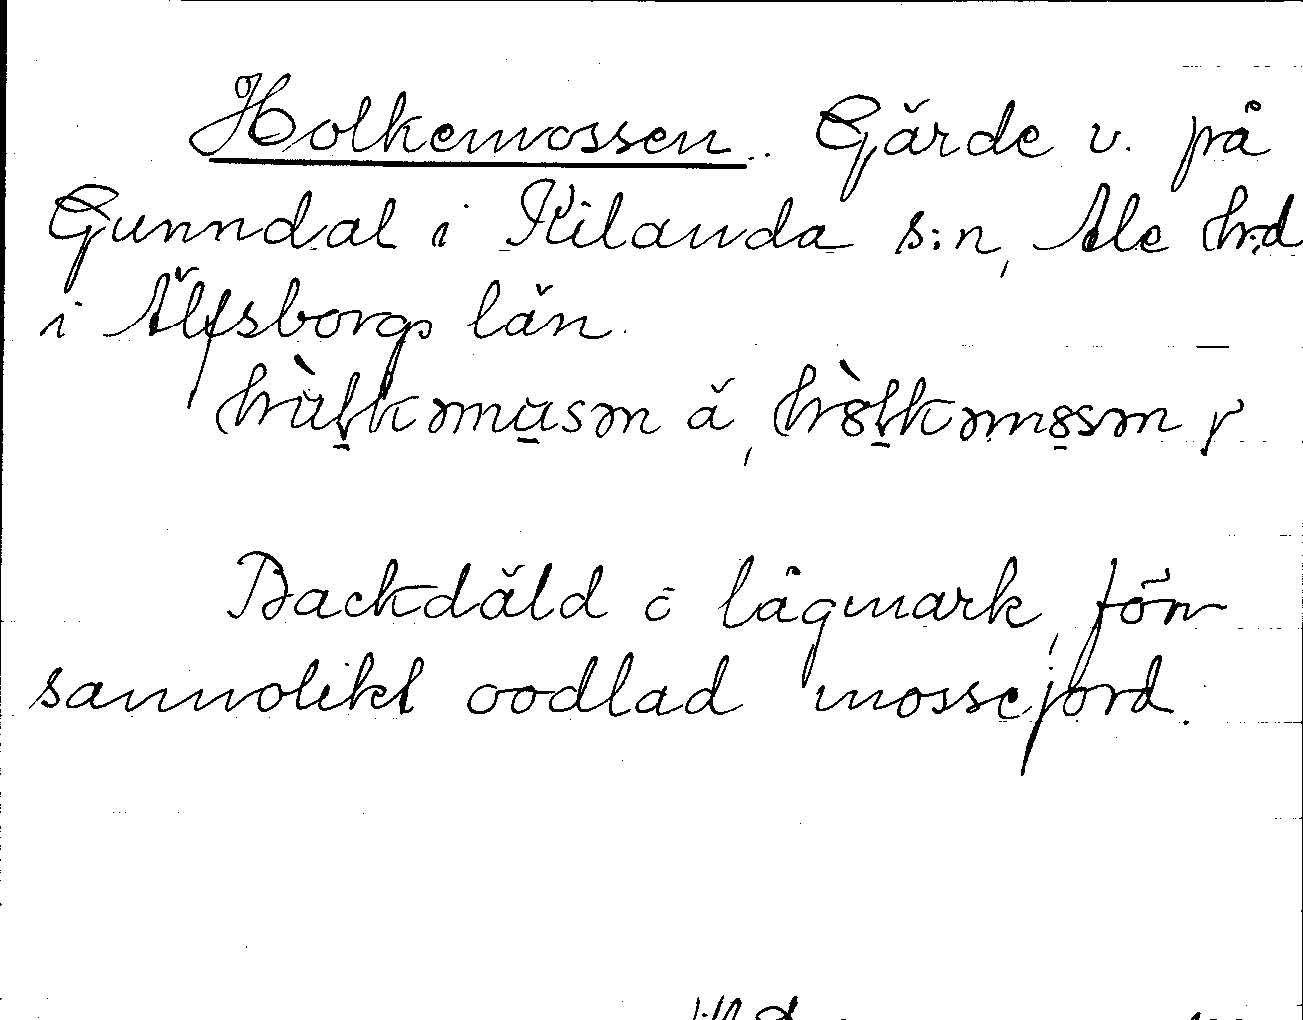 Holkemossen. Gärde v. på
Gunndal i Kilanda s:n, Ale h:d
i Älfsborgs län.
hùlkəmusən ä, hòlkəmosən y
Backdäld o lågmark, förr
sannolikt oodlad mossejord.